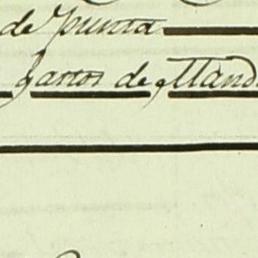 de punta
gastos de Mand